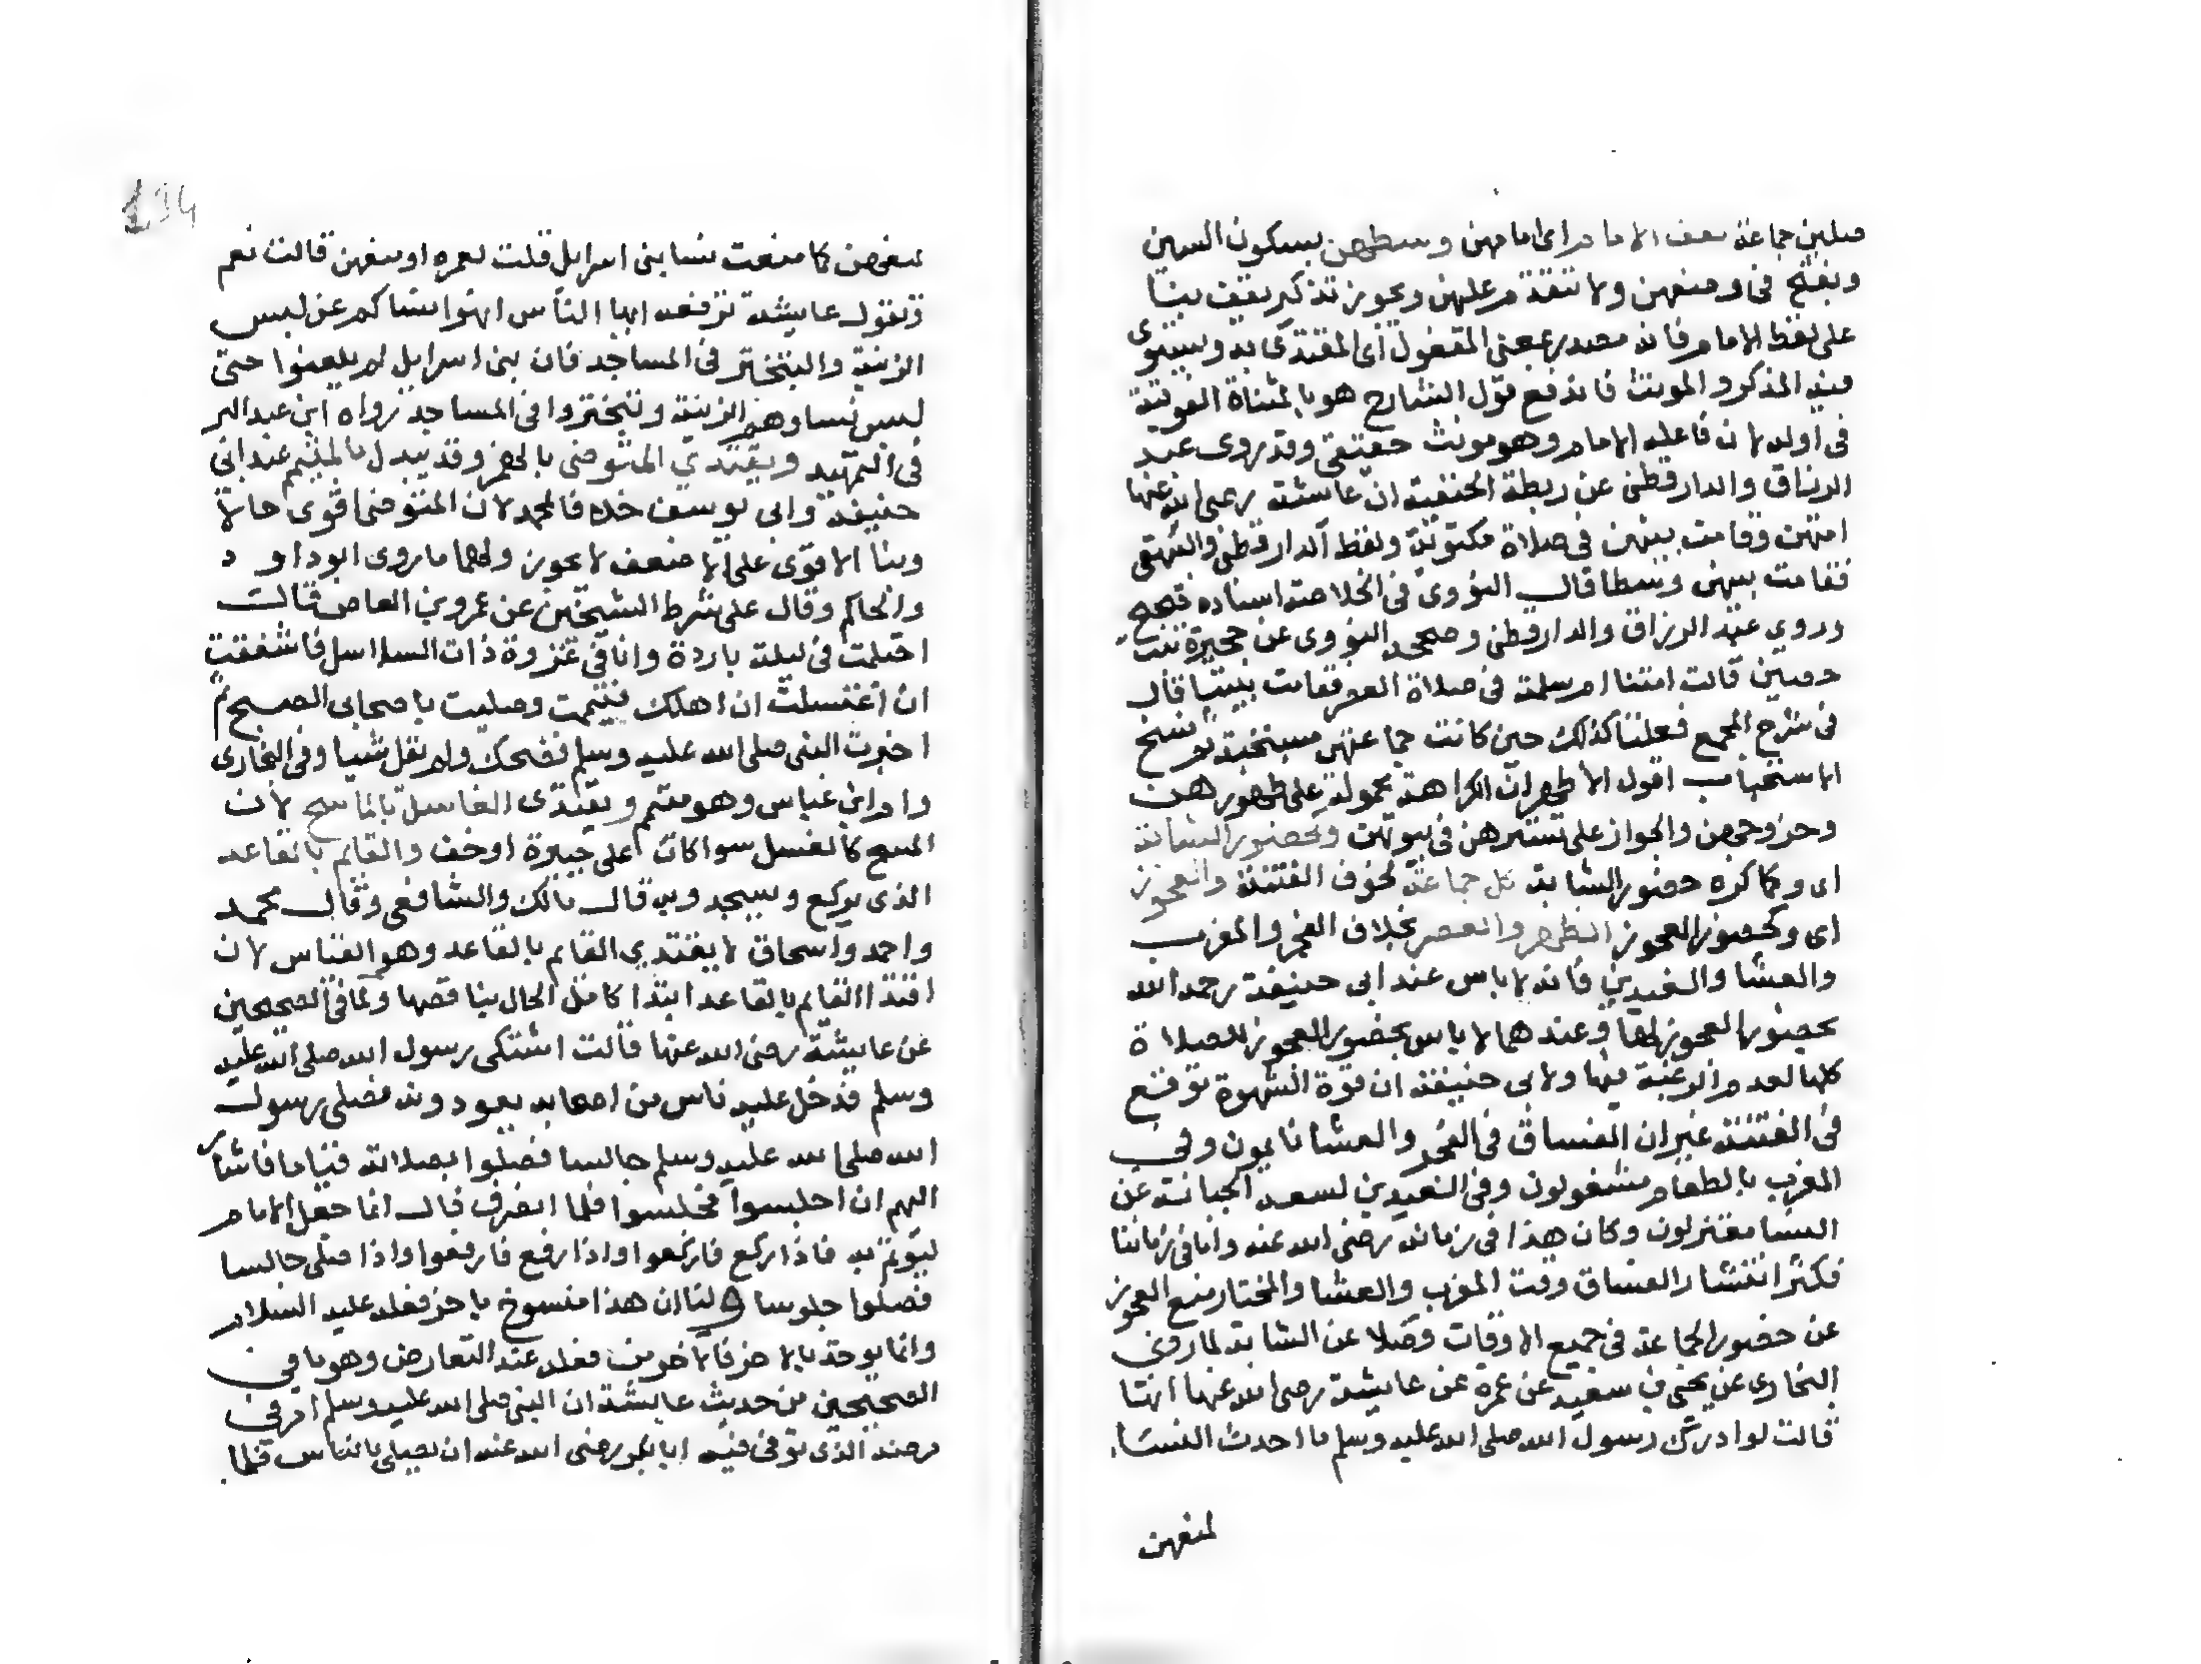 صلين جماعة يقف الامام اى امامهن وسطهن بسكون السين
وبفتح فى وضعهن ولا تتقدم عليهن ويجوز تذكير يقف بنا
على لفظ الامام فانه مصدر بمعنى المفعول اى المقتدى به ويستوى
فيه المذكر والمونث فاندفع قول الشارح هو بالمثناة الفوقية
فى اوله لان فاعله الامام وهو مونث حقيقى وقد روى عبد
الرزاق والدارقطنى عن ريطة الحنفية ان عائشة رضى الله عنها
امتهن وقامت بينهن فى صلاة مكتوبة ولفظ الدارقطنى والبيهقى
فقامت بينهن وسطا قال النووى فى الخلاصة اسناده صحيح
وروى عبد الرزاق والدارقطنى وصححه النووى عن حجيرة بنت
حصين قالت امتنا ام سلمة فى صلاة العصر فقامت بيننا قال
فى شرح المجمع فعلتا كذلك حين كانت جماعتهن مستحبة ثم نسخ
الاستحباب اقول الاظهر ان الكراهة محمولة على ظهورهن
وخروجهن والجواز على تسترهن فى بيوتهن وكحضور الشابة
اى وكما كره حضور الشابة كل جماعة لخوف الفتنة والعجوز
اى وكحضور العجوز الظهر والعصر بخلاف الفجر والمغرب
والعشا والعيدين فانه لا باس عند ابى حنيفة رحمه الله
بحضور العجوز لها وعندهما لا باس بحضور العجوز للصلاة
كلها لعدم الرغبة فيها ولابى حنيفة ان قوة الشهوة توقع
فى الفتنة غير ان الفساق فى الفجر والعشا نايمون وفى
المغرب بالطعام مشغولون وفى العيدين لسعة الجبانة عن
النسا معتزلون وكان هذا فى زمانه رضى الله عنه واما فى زماننا
فكثر انتشار الفساق وقت المغرب والعشا والمختار منع العجوز
عن حضور الجماعة فى جميع الاوقات فضلا عن الشابة لما روى
البخارى عن يحيى بن سعيد عن عمرة عن عايشة رضى الله عنها انها
قالت لو ادرك رسول الله صلى الله عليه وسلم ما احدث النساء
لمنعهن
لمنعهن كما منعت نسا بنى اسرايل قلت لعمرة اومنعهن قالت نعم
وتقول عايشة ترفعه ايها الناس انهوا نساكم عن لبس
الزينة والتبختر فى المساجد فان بنى اسرايل لم يلعنوا حتى
لبس نساوهم الزينة وتبختروا فى المساجد رواه ابن عبد البر
فى التمهيد ويقتدى المتوضى بالمتيمم عند ابى
حنيفة وابى يوسف خلافا لمحمد لان المتوضى اقوى حالا
وبنا الاقوى على الاضعف لا يجوز ولهما ما روى ابو داود
والحاكم وقال على شرط الشيخين عن عمرو بن العاص قالت
احتلمت فى ليلة باردة وانا فى غزوة ذات السلاسل فاشفقت
ان اغتسلت ان اهلك فتيممت وصليت باصحابى الصبح ثم
اخبرت النبى صلى الله عليه وسلم فضحك ولم يقل شيا وفى البخارى
وام ابن عباس وهو متيمم ويقتدى الغاسل بالماسح لان
المسح كالغسل سوا كان على جبيرة او خف والقايم بالقاعد
الذى يركع ويسجد وبه قال مالك والشافعى وقال محمد
واحمد واسحاق لا يقتدى القايم بالقاعد وهو القياس لان
اقتدا القايم بالقاعد ابتدا كامل الحال بناقصها ولما فى الصحيحين
عن عايشة رضى الله عنها قالت اشتكى رسول الله صلى الله عليه
وسلم فدخل عليه ناس من اصحابه يعودونه فصلى رسول
الله صلى الله عليه وسلم جالسا فصلوا بصلاته قياما فاشار
اليهم ان اجلسوا فجلسوا فلما انصرف قال انما جعل الامام
ليوتم به فاذا ركع فاركعوا واذا رفع فارفعوا واذا صلى جالسا
فصلوا جلوسا ولنا ان هذا منسوخ باخر فعله عليه السلام
وانما يوخذ بالاخر فالاخر من فعله عند التعارض وهو ما فى
الصحيحين من حديث عايشة ان النبى صلى الله عليه وسلم امر فى
مرضه الذى توفى فيه ابا بكر رضى الله عنه ان يصلى بالناس فلما